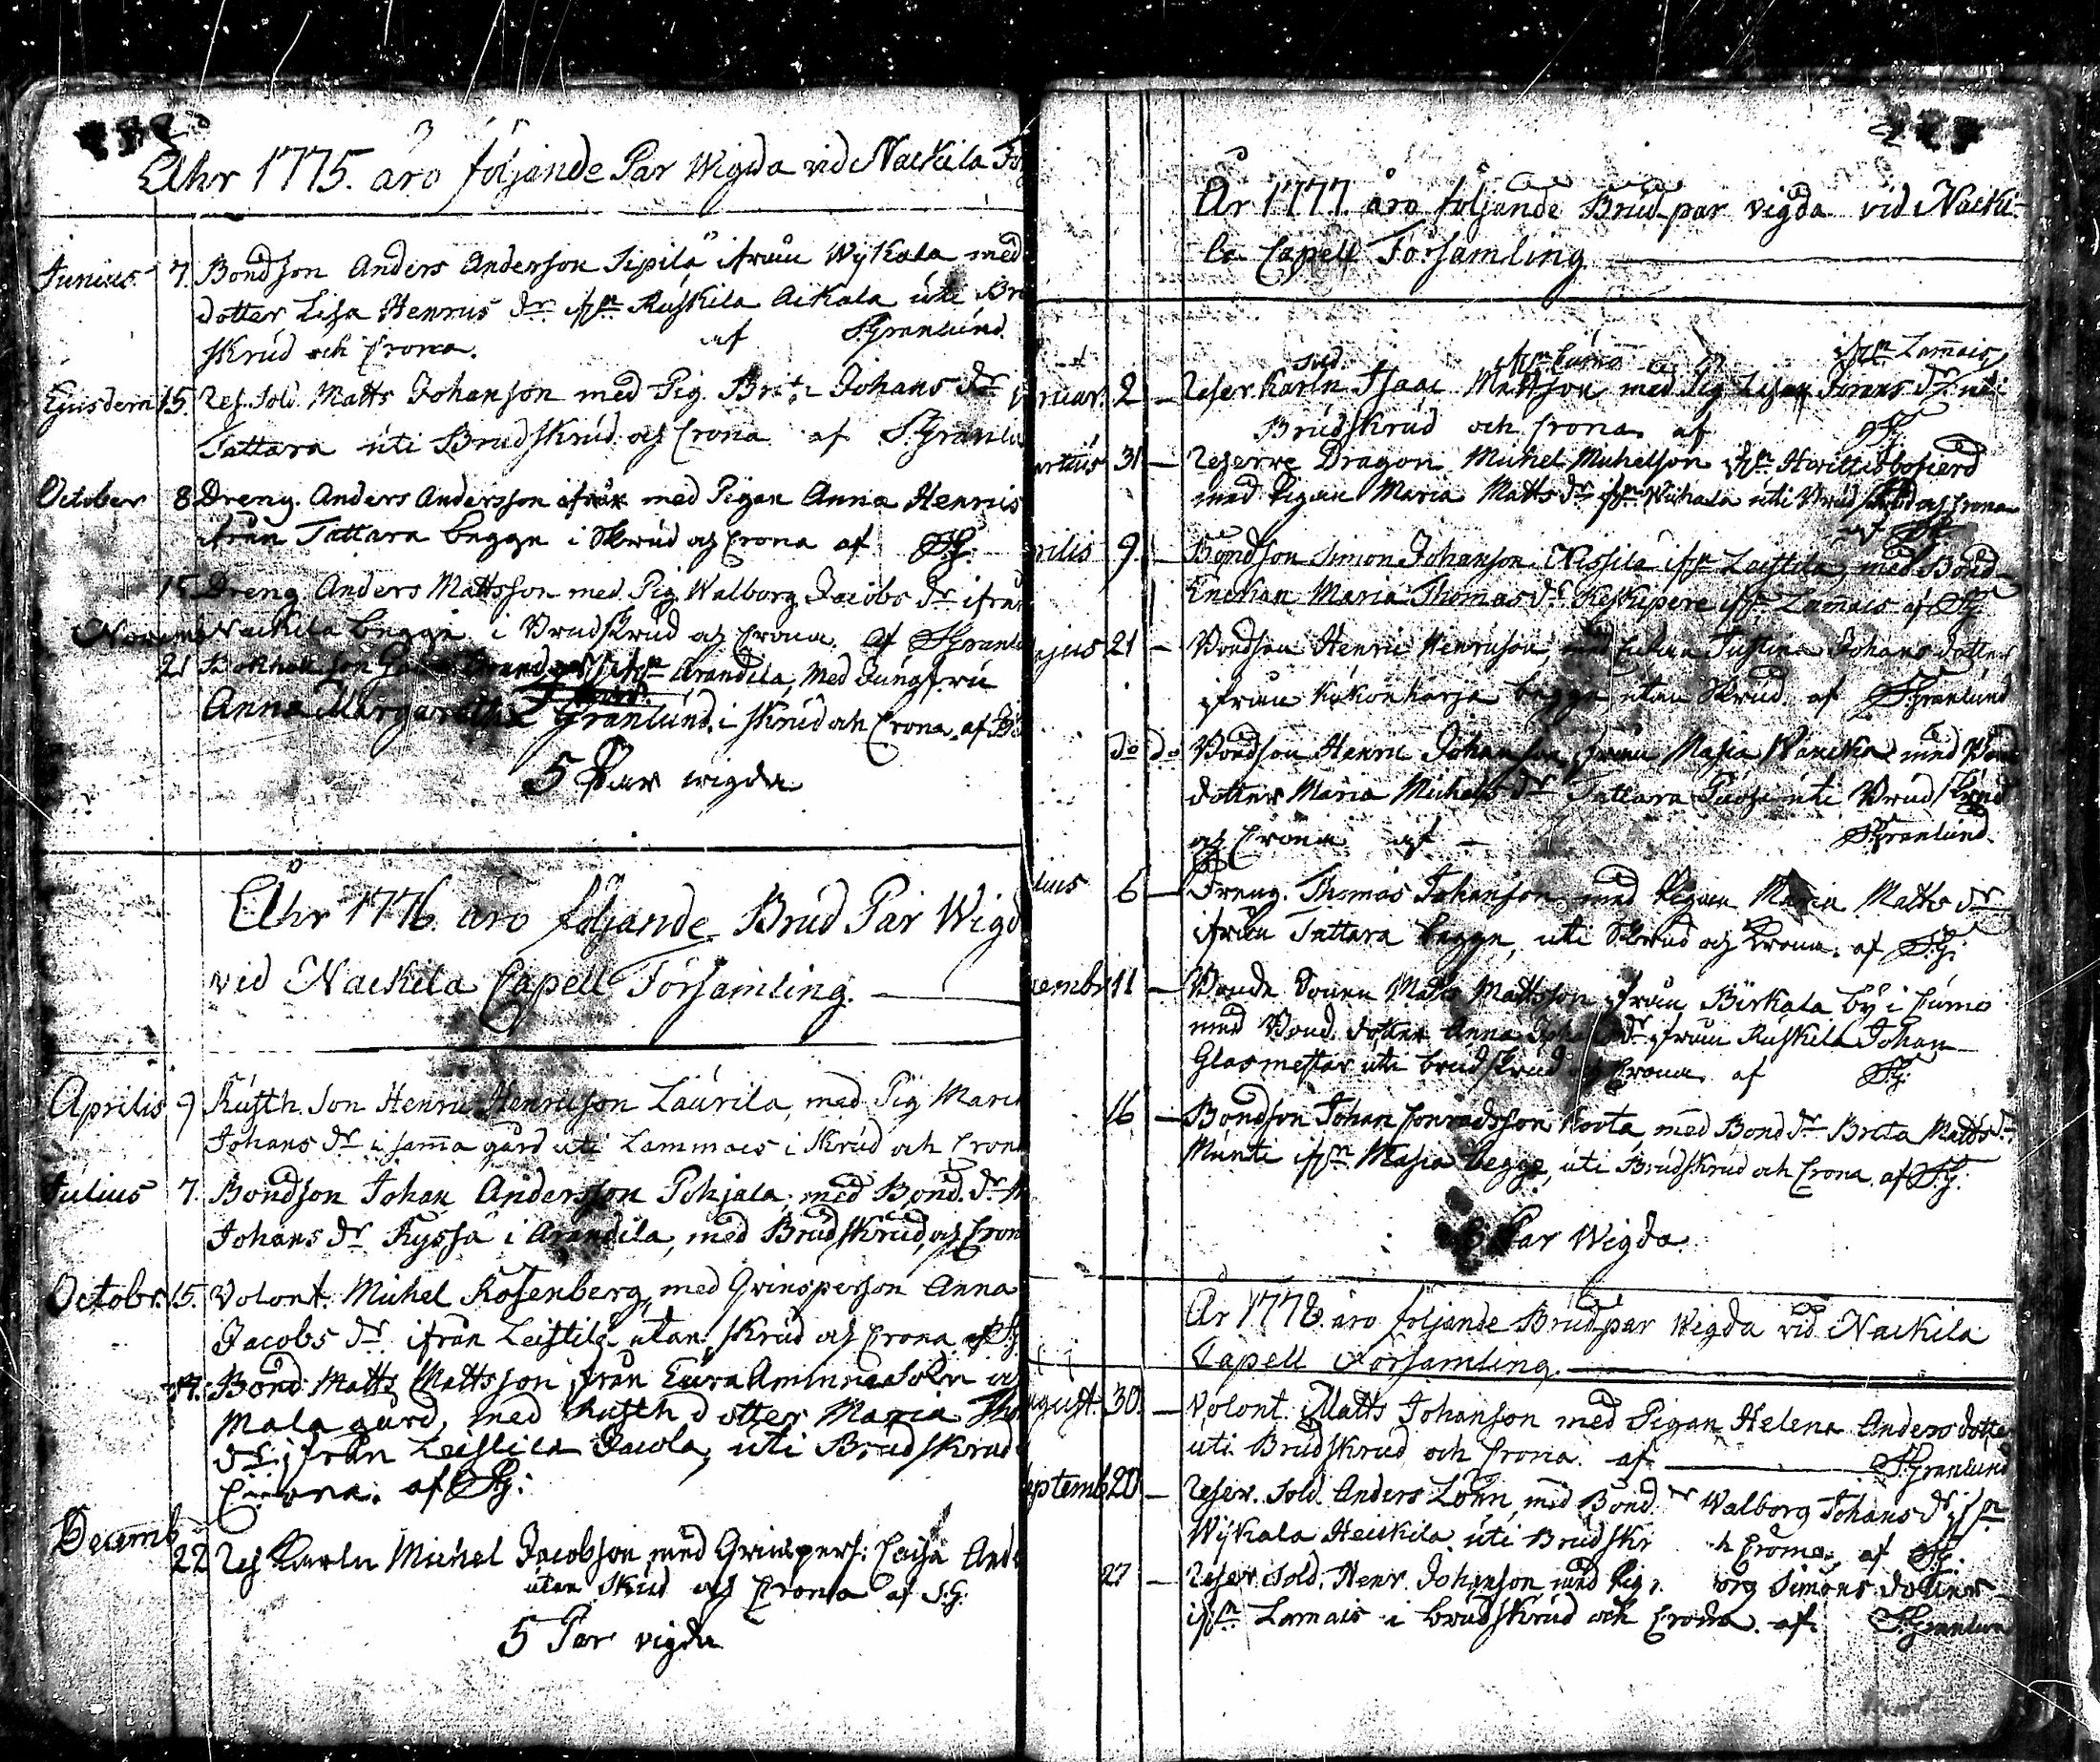 Åhr 1775. äro följande Par Wigda vid Nackila
Junius 7. Bondson Anders Anderson Sipilä ifrån Wykala med
dotter Lisa Henrics dr ifrn Ruskila Aikala uti
skrud och Crona. af S. Granlund.
Ejusdem 15. Res. Sold. Matts Johanson med Pig. Brita Johans dr
Tattara uti Brudskrud och Crona af S. Granlu
October 8 Dreng. Anders Andersson med Pigan Anna Henrics
ifrån Tattara begge i Skrud och Crona af S.G.
15. Dreng Anders Mattsson med Pig Walborg Jacobs dr ifrån
Nackila begge i Brudskrud och Crona. af S. Granlu
21 Arandila, Med Jungfru
Anna Margaretha Granlund. i Skrud och Crona. af
5 Par wigda
Åhr 1776. äro följande Brud Par Wigd
vid Nackila Capell Församling.
Aprilis 9 Rusth. Son Henric Henricson Laurila, med Pig Mari
Johans dr i samma gård uti Lammais i Skrud och Cron
Julius 7. Bondson Johan Andersson Pohjala, med Bond. dr
Johans dr Kyssä i Arandila, med Brudskrud, och Cron
Octobr. 15. Volont. Michel Rosenberg, med Qvinsperson Anna
Jacobs dr. ifrån Leistila utan skrud och Crona af S.G.
Bond Matts Mattsson ifrån Eura
Mala gård, med Rusth dotter Maria Tho
dr. ifrån Leistila Jacola, uti Brudskrud
Crona. af S.G.
Decemb
22 Res Karln Michel Jacobson med Qvinspers: Caisa And
utan Skrud och Crona af S.G.
5 Par vigda
År 1777. äro följande Brud par vigda vid Nacki-
la Capell Församling
ifrn Cumo ifrn Lamais,
ruar. 2 Reser. Karln Isaac Mattson med Pig Lisa
Brudskrud och Crona. af S.G.
artius 31 Reserve Dragon Michel Michelson ifrn Hvittisbofierd
med Pigan Maria Matts dr ifrn Wichala uti Brudskrud och Crona
af S.G.
rilis 9. Bondson Simon Johanson Nissila ifrn Leistila, med Bond
Enckan Maria Thomas dr Keskipere ifrn Lamais af S.G.
ajus 21 Bondson Henric Henricson, med Enkan Justina Johans dotter
ifrån Kukonharja begge utan Skrud. af S. Granlund
do do Bondson Henric Johanson ifrån Masia med Bond
dotter Maria Michels dr Tattara uti Brudskrud
och Crona af S. Granlund.
lius 6 Dreng. Thomas Johanson med Pigan Maria Matts dr
ifrån Tattara begge, uti Skrud och Krona. af S.G.
vembr 11 Bonde Sonen Matts Mattsson ifrån Birkala by i Cumo
med Bond. dotter Anna dr ifrån Ruskila Johan
Glasmestar uti brudskrud och Crona. af S.G.
16 Bondson Johan Conradsson med Bond dr Brita Matts dr
Munti ifrn Masia begge, uti Brudskrud och Crona. af S.G.
8 Par Wigda
År 1778. äro följande Brudpar Wigda vid Nackila
Capell Församling.
ugust. 30. Volont. Matts Johanson med Pigan Helena Anders dotte
uti Brudskrud och Crona. af S. Granlund
eptemb 20 Reser. Sold. Anders Lönn, med Bond. dr Walborg Johans dr ifrn
Wykala Heickila, uti Brudskr h Crona, af S.G.
27 Reser. Sold. Henr. Johanson med Pig. org Simons dotter
ifrn Lamais i brudskrud och Crona. af S. Granlun